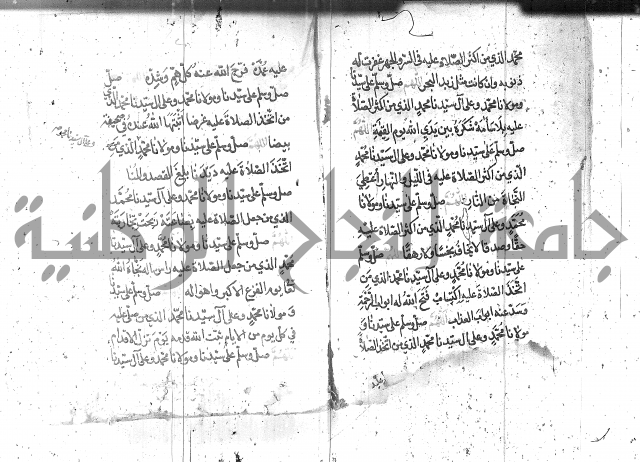 محمد الذي من اكثر الصلاة عليه في السر والجهر غفرت له
ذنوبه وان كانت مثل زبد البحر اللهم صل وسلم على سيدنا
ومولانا محمد وعلى آل سيدنا محمد الذي من اكثر الصلاة
عليه بلا سآمة شكره بين يدي الله يوم القيمة اللهم
صل وسلم على سيدنا ومولانا محمد وعلى ال سيدنا محمد
الذي من اكثر الصلاة عليه في الليل والنهار اعطي
النجاة من النار اللهم صل وسلم على سيدنا ومولانا
محمد وعلى آل سيدنا محمد الذي من اكثر الصلاة عليه
حقا وصدقا لا يخاف بخسا ولا رهقا اللهم صل وسلم
على سيدنا ومولانا محمد وعلى آل سيدنا محمد الذي من
اتخذ الصلاة عليه اكتساب فتح الله له ابواب الرحمة
وسد عنه ابواب العذاب اللهم صل وسلم على سيدنا و
مولانا محمد وعلى ال سيدنا محمد الذي من اتخذ الصلاة
عليه
عليه عمدة فرج الله عنه كل هم وشدة اللهم صل
وسلم على سيدنا ومولانا محمد وعلى آل سيدنا محمد الذي
من اتخذ الصلاة عليه غرضا اثبتها الله عنده في صحيفة
بيضا اللهم صل وسلم على سيدنا ومولانا محمد الذي من
اتخذ الصلاة عليه ديدنا بلغ القصد والمنا اللهم
صل وسلم على سيدنا ومولانا محمد وعلى آل سيدنا محمد
الذي من جعل الصلاة عليه بضاعته ربحت تجارته
اللهم صل وسلم على سيدنا ومولانا محمد وعلى آل سيدنا
محمد الذي من جعل الصلاة عليه راس المال الله
يوم الفزع الاكبر واهواله اللهم صل وسلم على سيدنا
ومولانا محمد وعلى آل سيدنا محمد الذي من صلى عليه
في كل يوم من الايام ثبت الله قدمه يوم تزل الاقدام
اللهم صل وسلم على سيدنا ومولانا محمد وعلى آل سيدنا
جامعة النجاح الوطنية